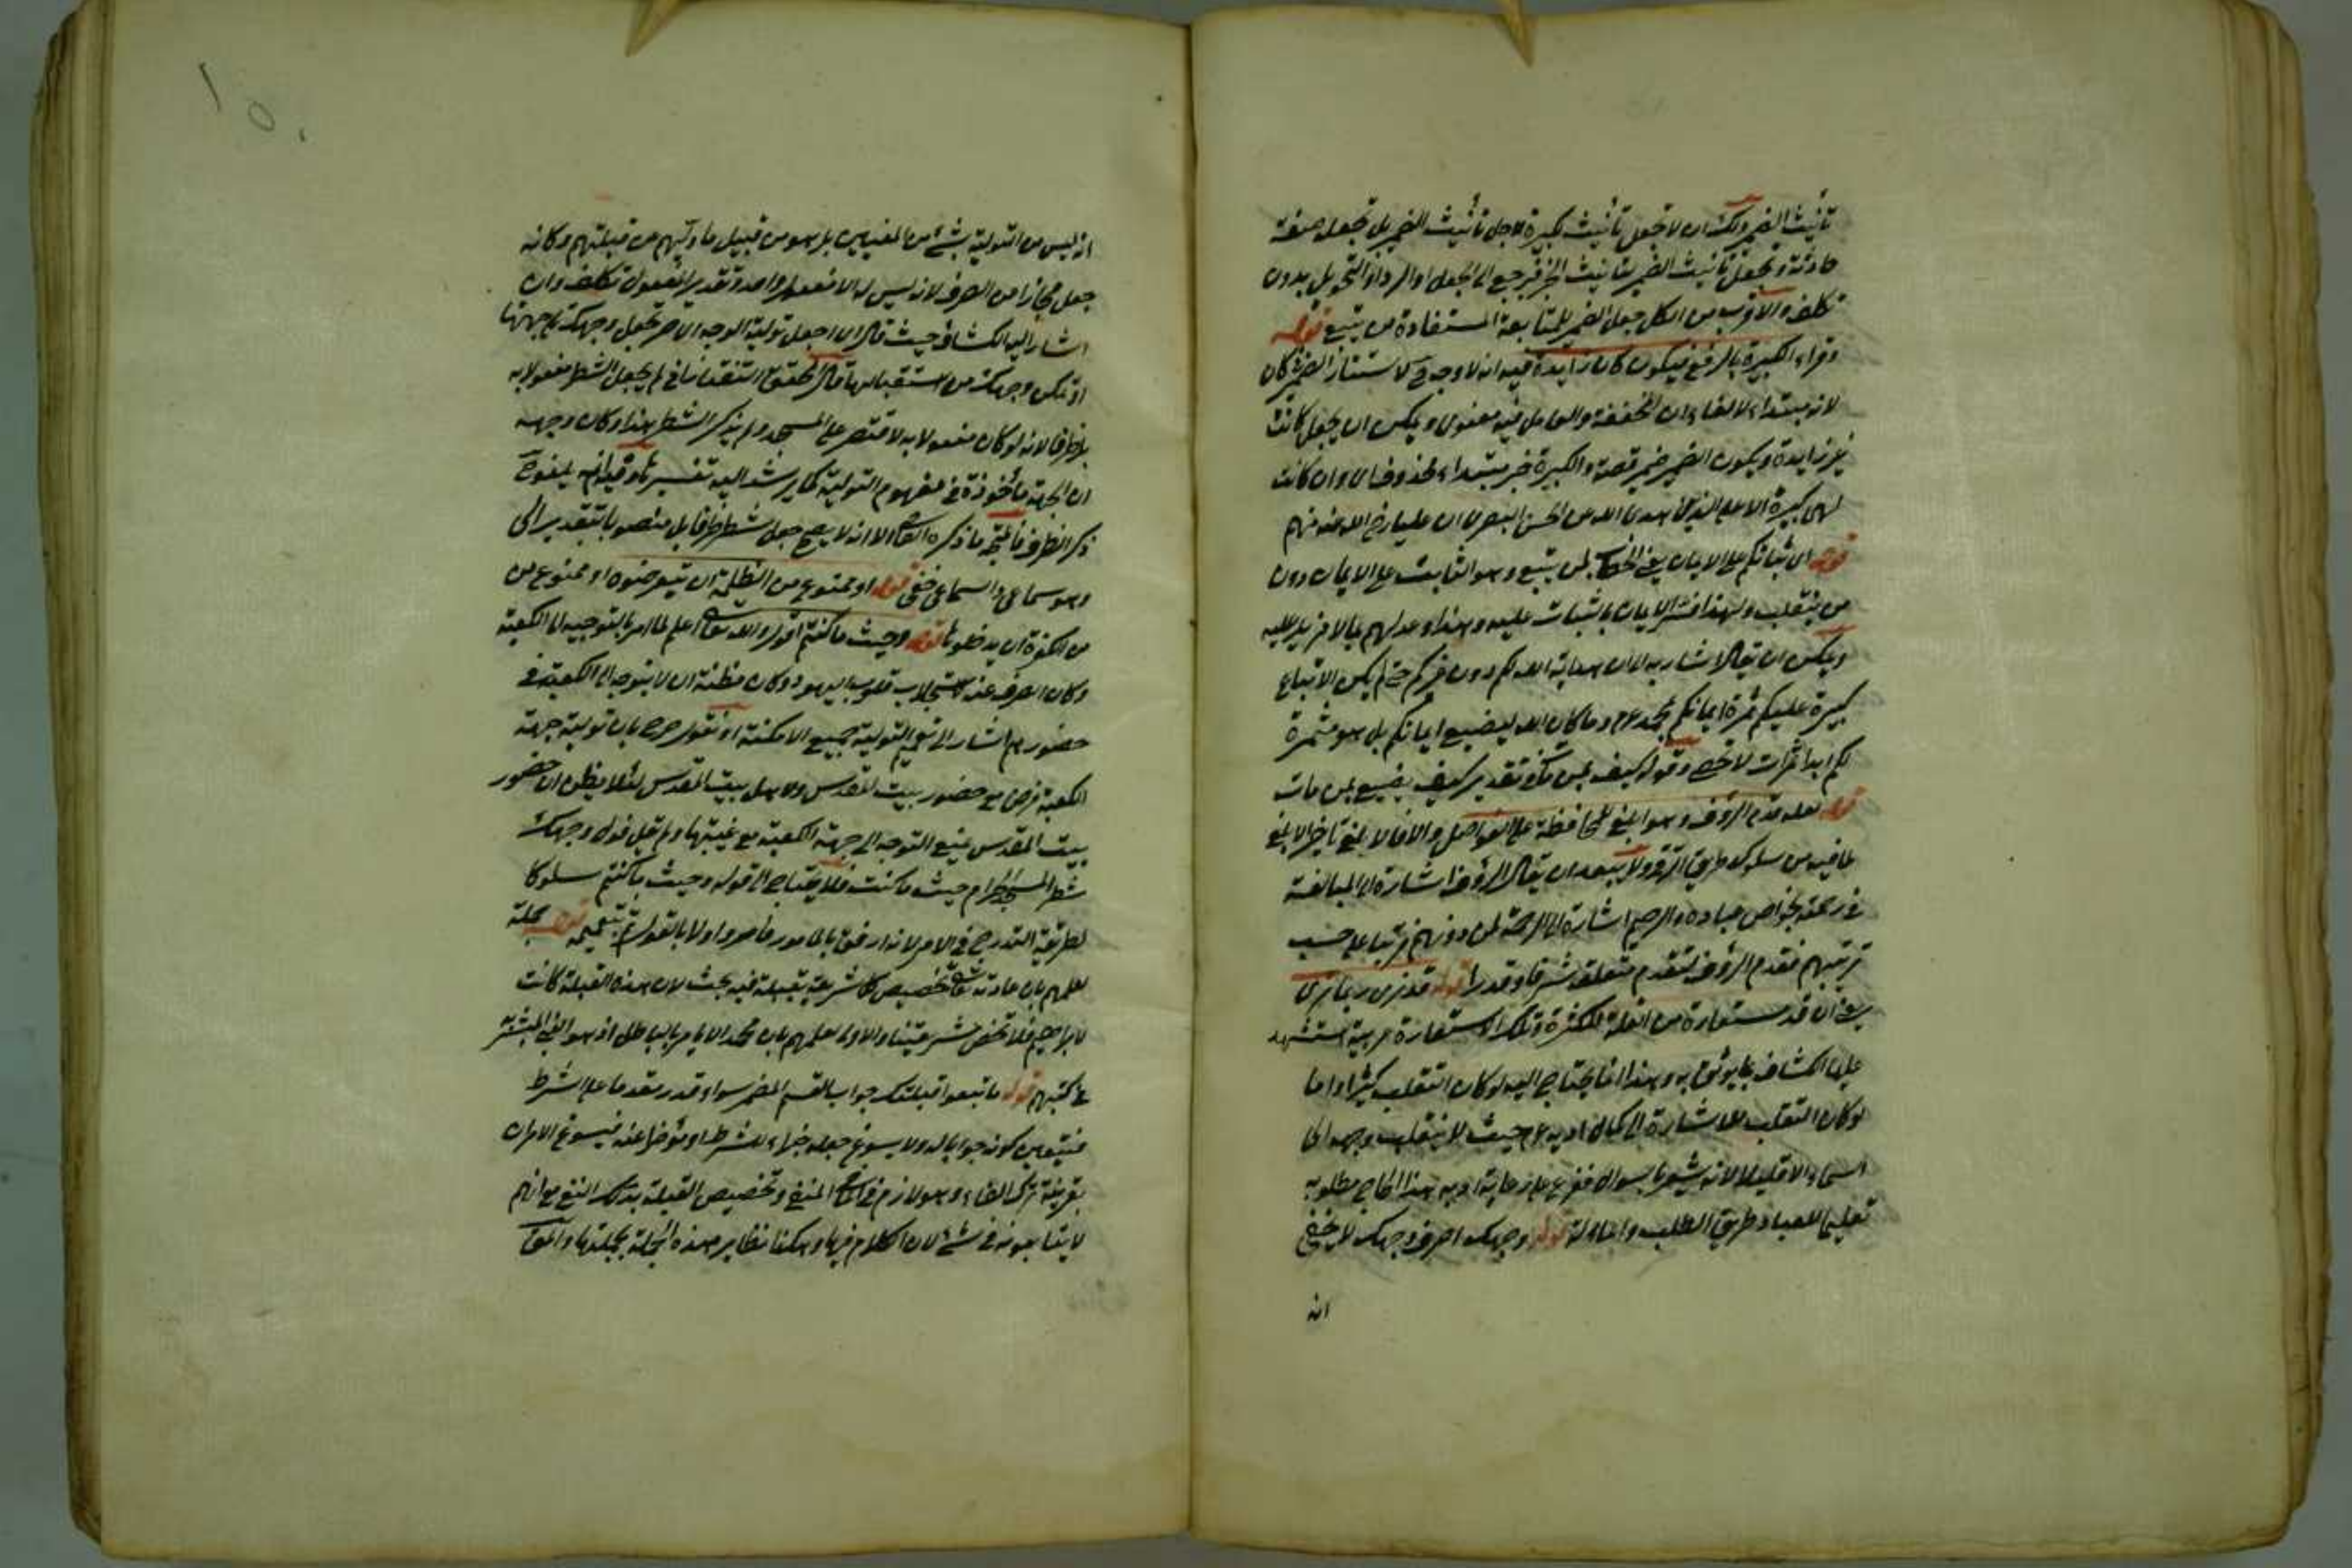 تأنيث الضمير ولك ان لا تجعل تأنيث كبيرة لاجل تأنيث الضمير بل تجعله صفة
حادثة وتجعل تأنيث الضمير بتأنيث الخبر فيرجع الى الجعل او الرد او التحويل بدون
تكلف والاقرب من الكل جعل الضمير للمتابعة المستفادة من يتبع قوله
وقراء الكبيرة بالرفع فيكون كان زايدة فيه انه لا وجه لاستتار الضمير كان
لانه مبتداء لالغاء ان المخففة والعامل فيه معنوى ويمكن ان يجعل كانت
غير زايدة ويكون الضمير ضمير قصة والكبيرة خبر مبتداء محذوف اى وان كانت
لهى كبيرة الا على الذين هدى الله عن الحسن البصرى ان عليا رضى الله عنه منهم
قوله اى ثباتكم على الايمان يعنى الخطاب لمن يتبع وهو الثابت على الايمان دون
من ينقلب ولهذا فسر الايمان بالثبات عليه وهذا وعد لهم بما لا مزيد عليه
ويمكن ان يقال اشار به الى ان هداية الله لكم دون غيركم حتى لم يكن الاتباع
كبيرة عليكم ثمرة ايمانكم بمحمد عم وما كان الله ليضيع ايمانكم بل هو مثمرة
لكم ابدا ثمرات لا تحصى وقوله كيف بمن مات تقديره كيف يضيع بمن مات
قوله لعله قدم الرؤف وهو ابلغ للمحافظة على الفواصل والا فالابلغ تاخير الابلغ
لما فيه من سلوك طريق الترقى ولا يبعد ان يقال الرؤف اشارة الى المبالغة
فى رحمته لخواص عباده والرحيم اشارة الى الرحمة لمن دونهم فرتبا على حسب
ترتيبهم فقدم الرؤف لتقدم متعلقه شرفا وقدرا قوله قد نرى ربما نرى
يعنى ان قد مستعارة من القلة للكثرة وتلك الاستعارة عربية استشهد
عليها الكشاف بما يوثق به وهذا انما يحتاج اليه لو كان التقلب كثيرا واما
لو كان التقلب للاشارة الى كمال ادبه عم حيث لا ينقلب وجهه الى
السماء الا قليلا لانه يشعر بالسوال ففرع على رعاية ادبه هذا انجاح مطلوبه
تعليما للعباد طريق الطلب والمناولة قوله وجهك اصرف وجهك لا يخفى
انه
١٥٠
انه ليس من التولية بشئ من المعنيين بل هو من قبيل ما وليهم عن قبلتهم وكانه
جعل مجازا من الصرف لانه ليس له الا مفعول واحد وتقدير المفعول تكلف وان
اشار اليه الكشاف حيث قال اى اجعل تولية الوجه الاخر تجعل وجهك تلى جهتها
او تكن وجهتك من استقبالها قال المحقق التفتازانى لم يجعل الشطر مفعولا به
بل ظرفا لانه لو كان مفعولا به لاقتصر على المسجد ولم يذكر الشطر هذا وكان وجهه
ان الجهة ماخوذة فى مفهوم التولية كما يرشد اليه تفسيره
ذكر الظرف فالمتجه ما ذكره القاضى الا انه لا يصح جعل شطر ظرفا بل منصوبا بتقدير الى
وهو سماعى والسماعى خفى قوله او ممنوع من الظلمة ان يتعرضوه او ممنوع من
من الكفرة ان يدخلوها قوله وحيث ما كنتم اقول والله تعالى اعلم لما امر بالتوجيه الى الكعبة
وكان الصرف عنه لاستجلاب قلوب اليهود وكان مظنة ان لا يتوجه الى الكعبة فى
حضورهم اشار الى تعميم التولية جميع الامكنة او نقول صرح بان تولية جهة
الكعبة فرض مع حضور بيت المقدس ولاهل بيت المقدس لئلا يظن ان حضور
بيت المقدس يمنع التوجه الى جهة الكعبة مع غيبتها ولم يقل فول وجهك
شطر المسجد الحرام حيث ما كنت فلا يحتاج الى قوله وحيث ما كنتم سلوكا
لطريقة التدرج فى الامر لانه ارفق بالمامور فامر اولا بالقول ثم بتعميمه قوله جملة
لعلمهم بان عادته تعالى تخصيص كل شريعة بقبلة فيه بحث لان هذه القبلة كانت
لابراهيم فلا تختص بشريعتنا والاولى لعلمهم بان محمدا لا يامر بالباطل اذ هو النبى المبشر به
فى كتبهم قوله ما تبعوا قبلتك جواب القسم المضمر سواء قدر مقدما على الشرط
فيتعين كونه جوابا له ولا يسوغ جعله جزاء للشرط او مؤخرا عنه فيسوغ الامران
بقرينة ترك الفاء وهو لازم فى الماضى المنفى وتخصيص القبلة بذلك النفى مع انهم
لا يتابعونه فى شئ لان الكلام فيها وهكذا نظاير هذه الجملة بجملتها